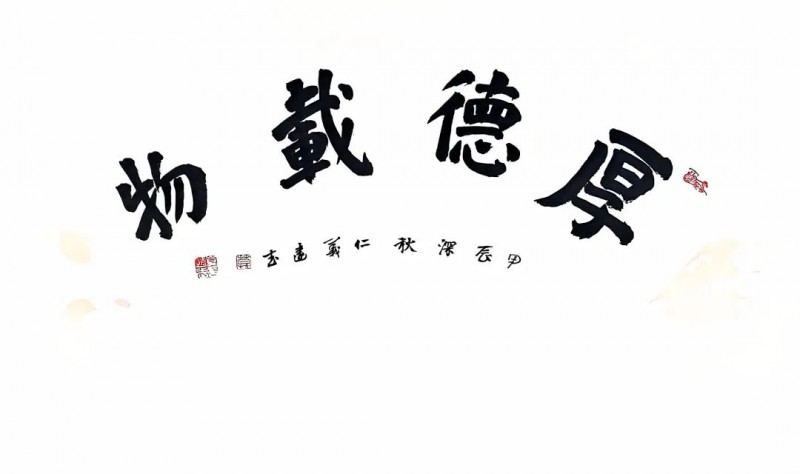 厚德載物
甲辰深秋仁義書